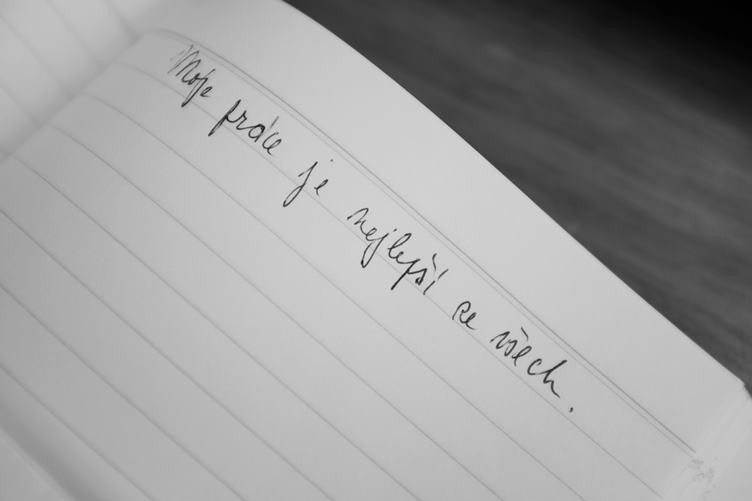 Moje práce je nejlepší ze všech.